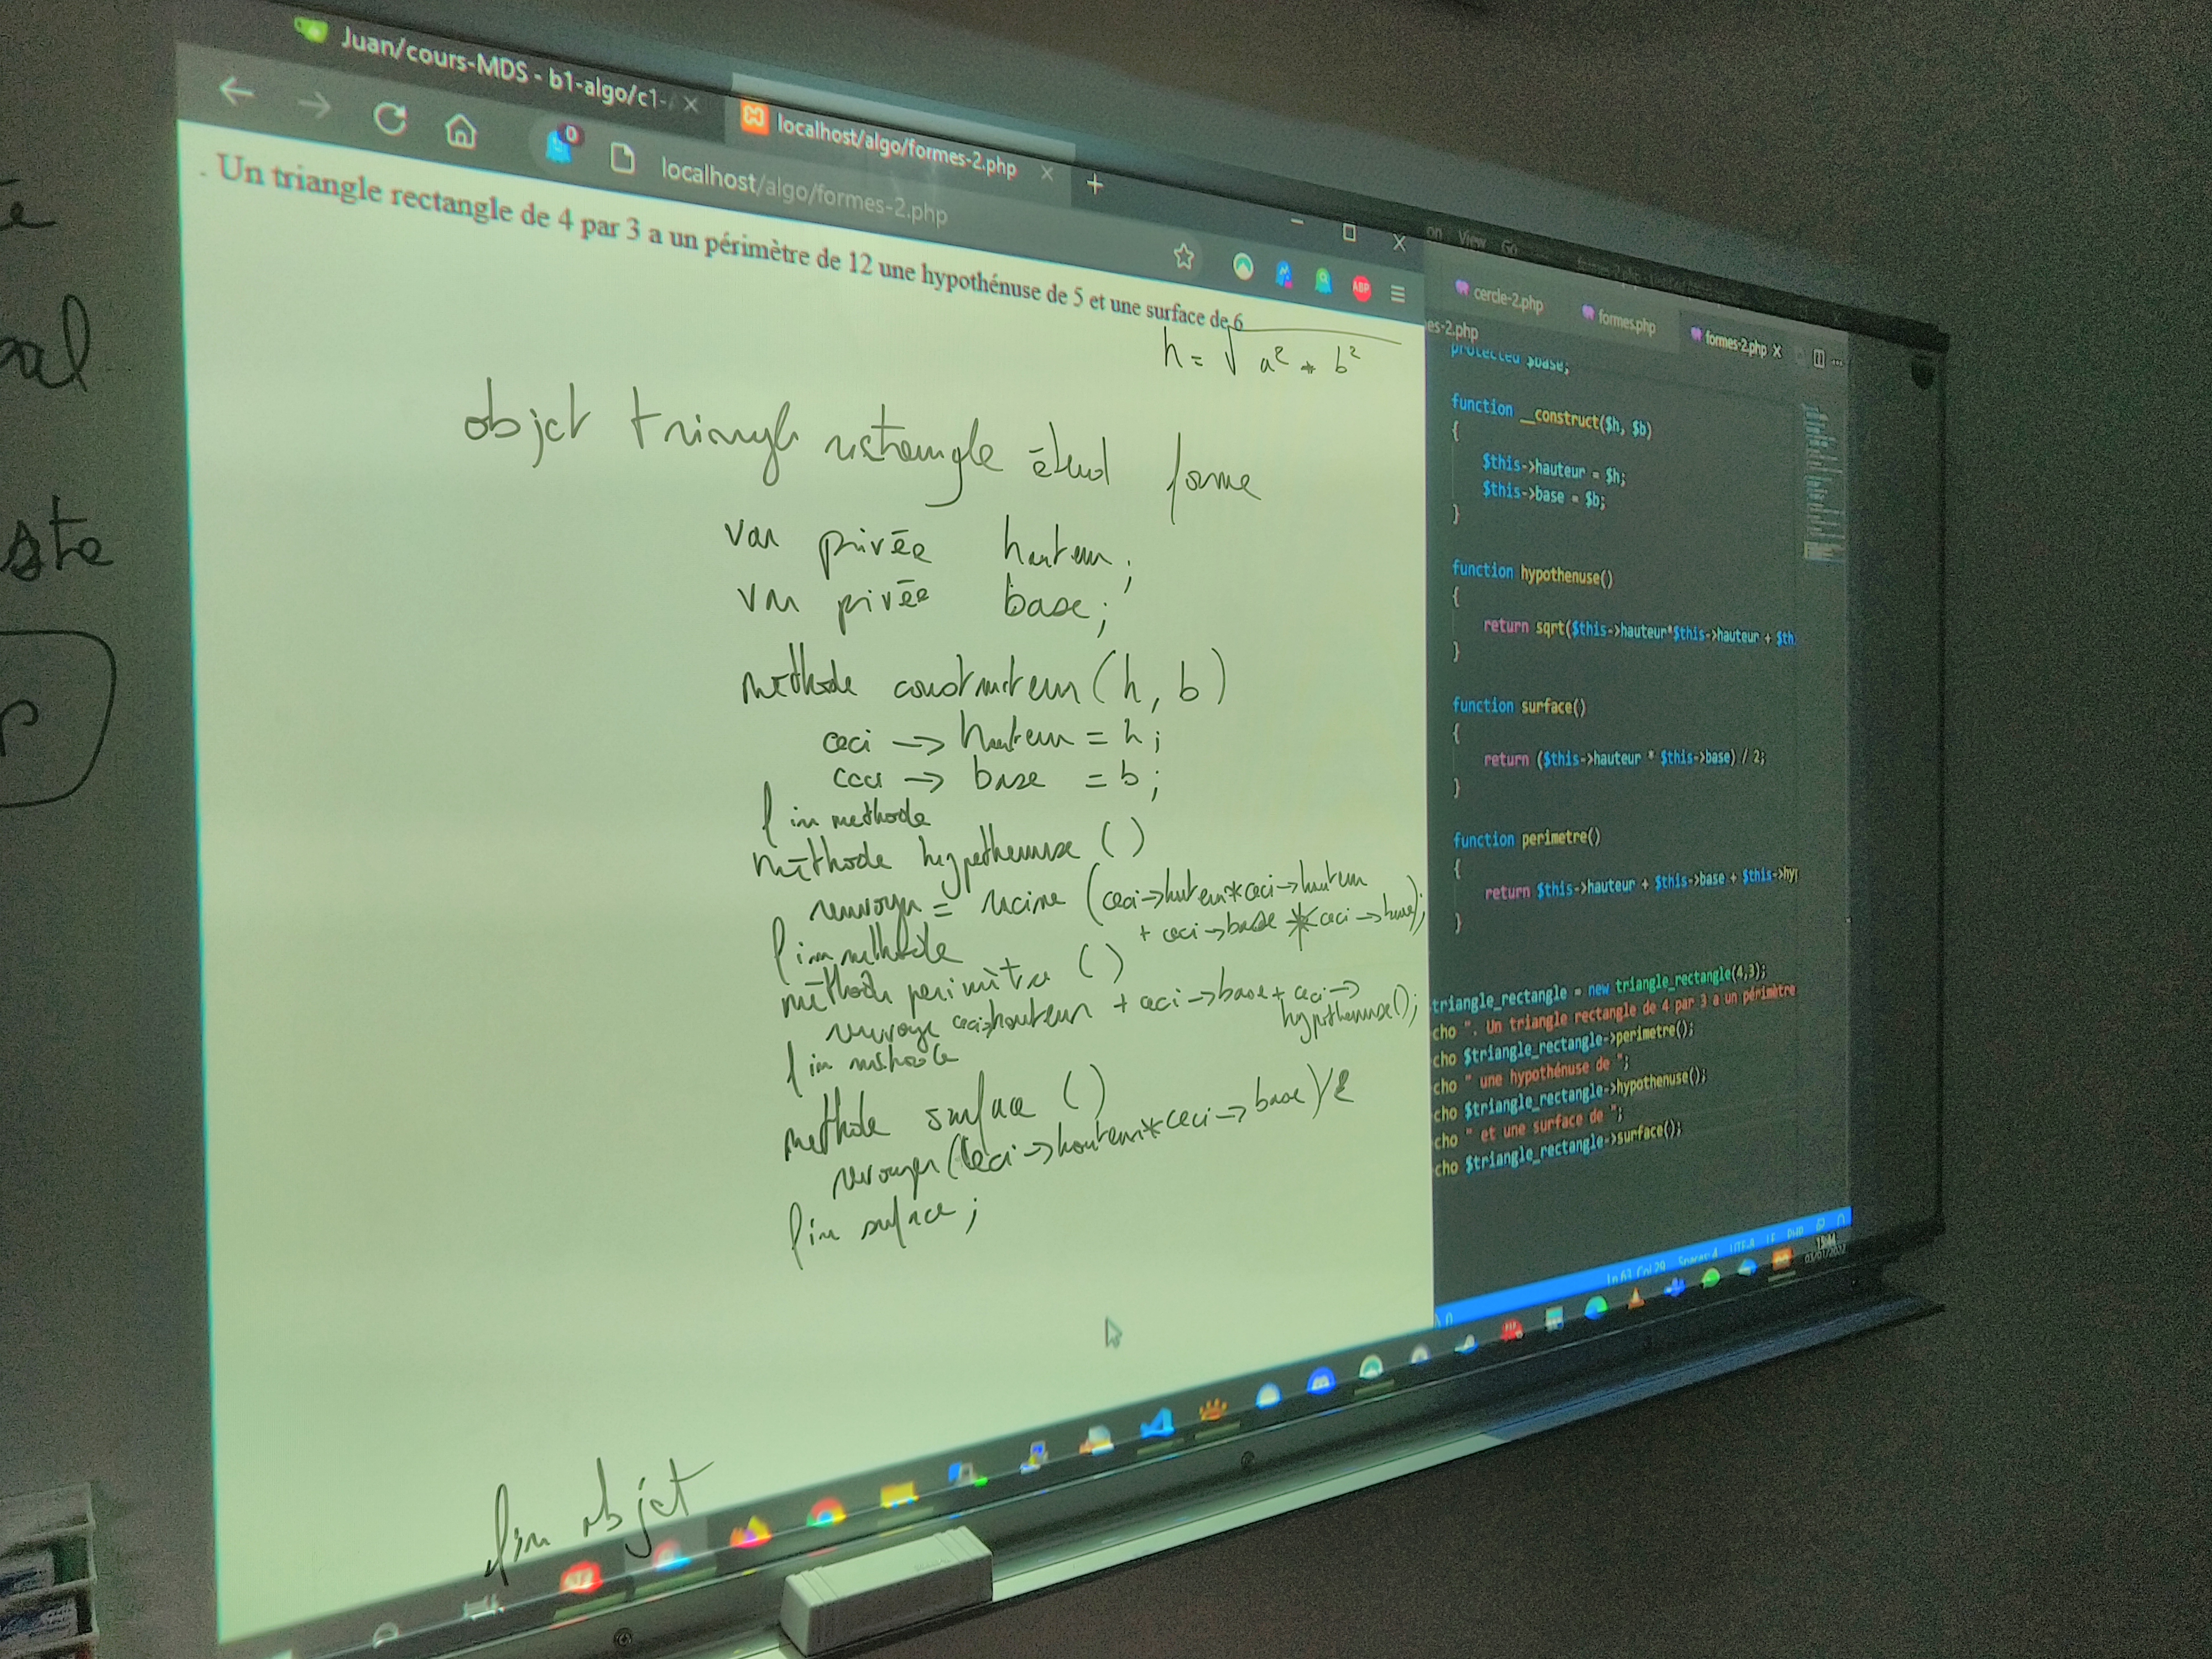 Juan/cours-MDS - b1-algo/c1-
localhost/algo/formes-2.php
localhost/algo/formes-2.php
0
ABP
. Un triangle rectangle de 4 par 3 a un périmètre de 12 une hypothénuse de 5 et une surface de 6
h = √ a² + b²
objet triangle rectangle étend forme
var privée hauteur;
var privée base;
méthode constructeur (h, b)
ceci → hauteur = h;
ceci → base = b;
fin methode
méthode hypothenuse ()
renvoyer = racine (ceci→hauteur*ceci→hauteur
+ ceci→base *ceci→base);
fin méthode
méthode perimètre ()
renvoye ceci→hauteur + ceci→base + ceci→
hypothenuse();
fin méthode
methode surface ()
renvoyer (ceci→hauteur*ceci→base)/2
fin surface;
fin objet
on View Go
cercle-2.php
formes.php
formes-2.php X
es-2.php
protected $base;
function __construct($h, $b)
{
$this->hauteur = $h;
$this->base = $b;
}
function hypothenuse()
{
return sqrt($this->hauteur*$this->hauteur + $th
}
function surface()
{
return ($this->hauteur * $this->base) / 2;
}
function perimetre()
{
return $this->hauteur + $this->base + $this->hyp
}
triangle_rectangle = new triangle_rectangle(4,3);
cho ". Un triangle rectangle de 4 par 3 a un périmètre
cho $triangle_rectangle->perimetre();
cho " une hypothénuse de ";
cho $triangle_rectangle->hypothenuse();
cho " et une surface de ";
cho $triangle_rectangle->surface();
Ln 63, Col 29 Spaces: 4 UTF-8 LF PHP
15:44
03/01/2022
te
al
ste